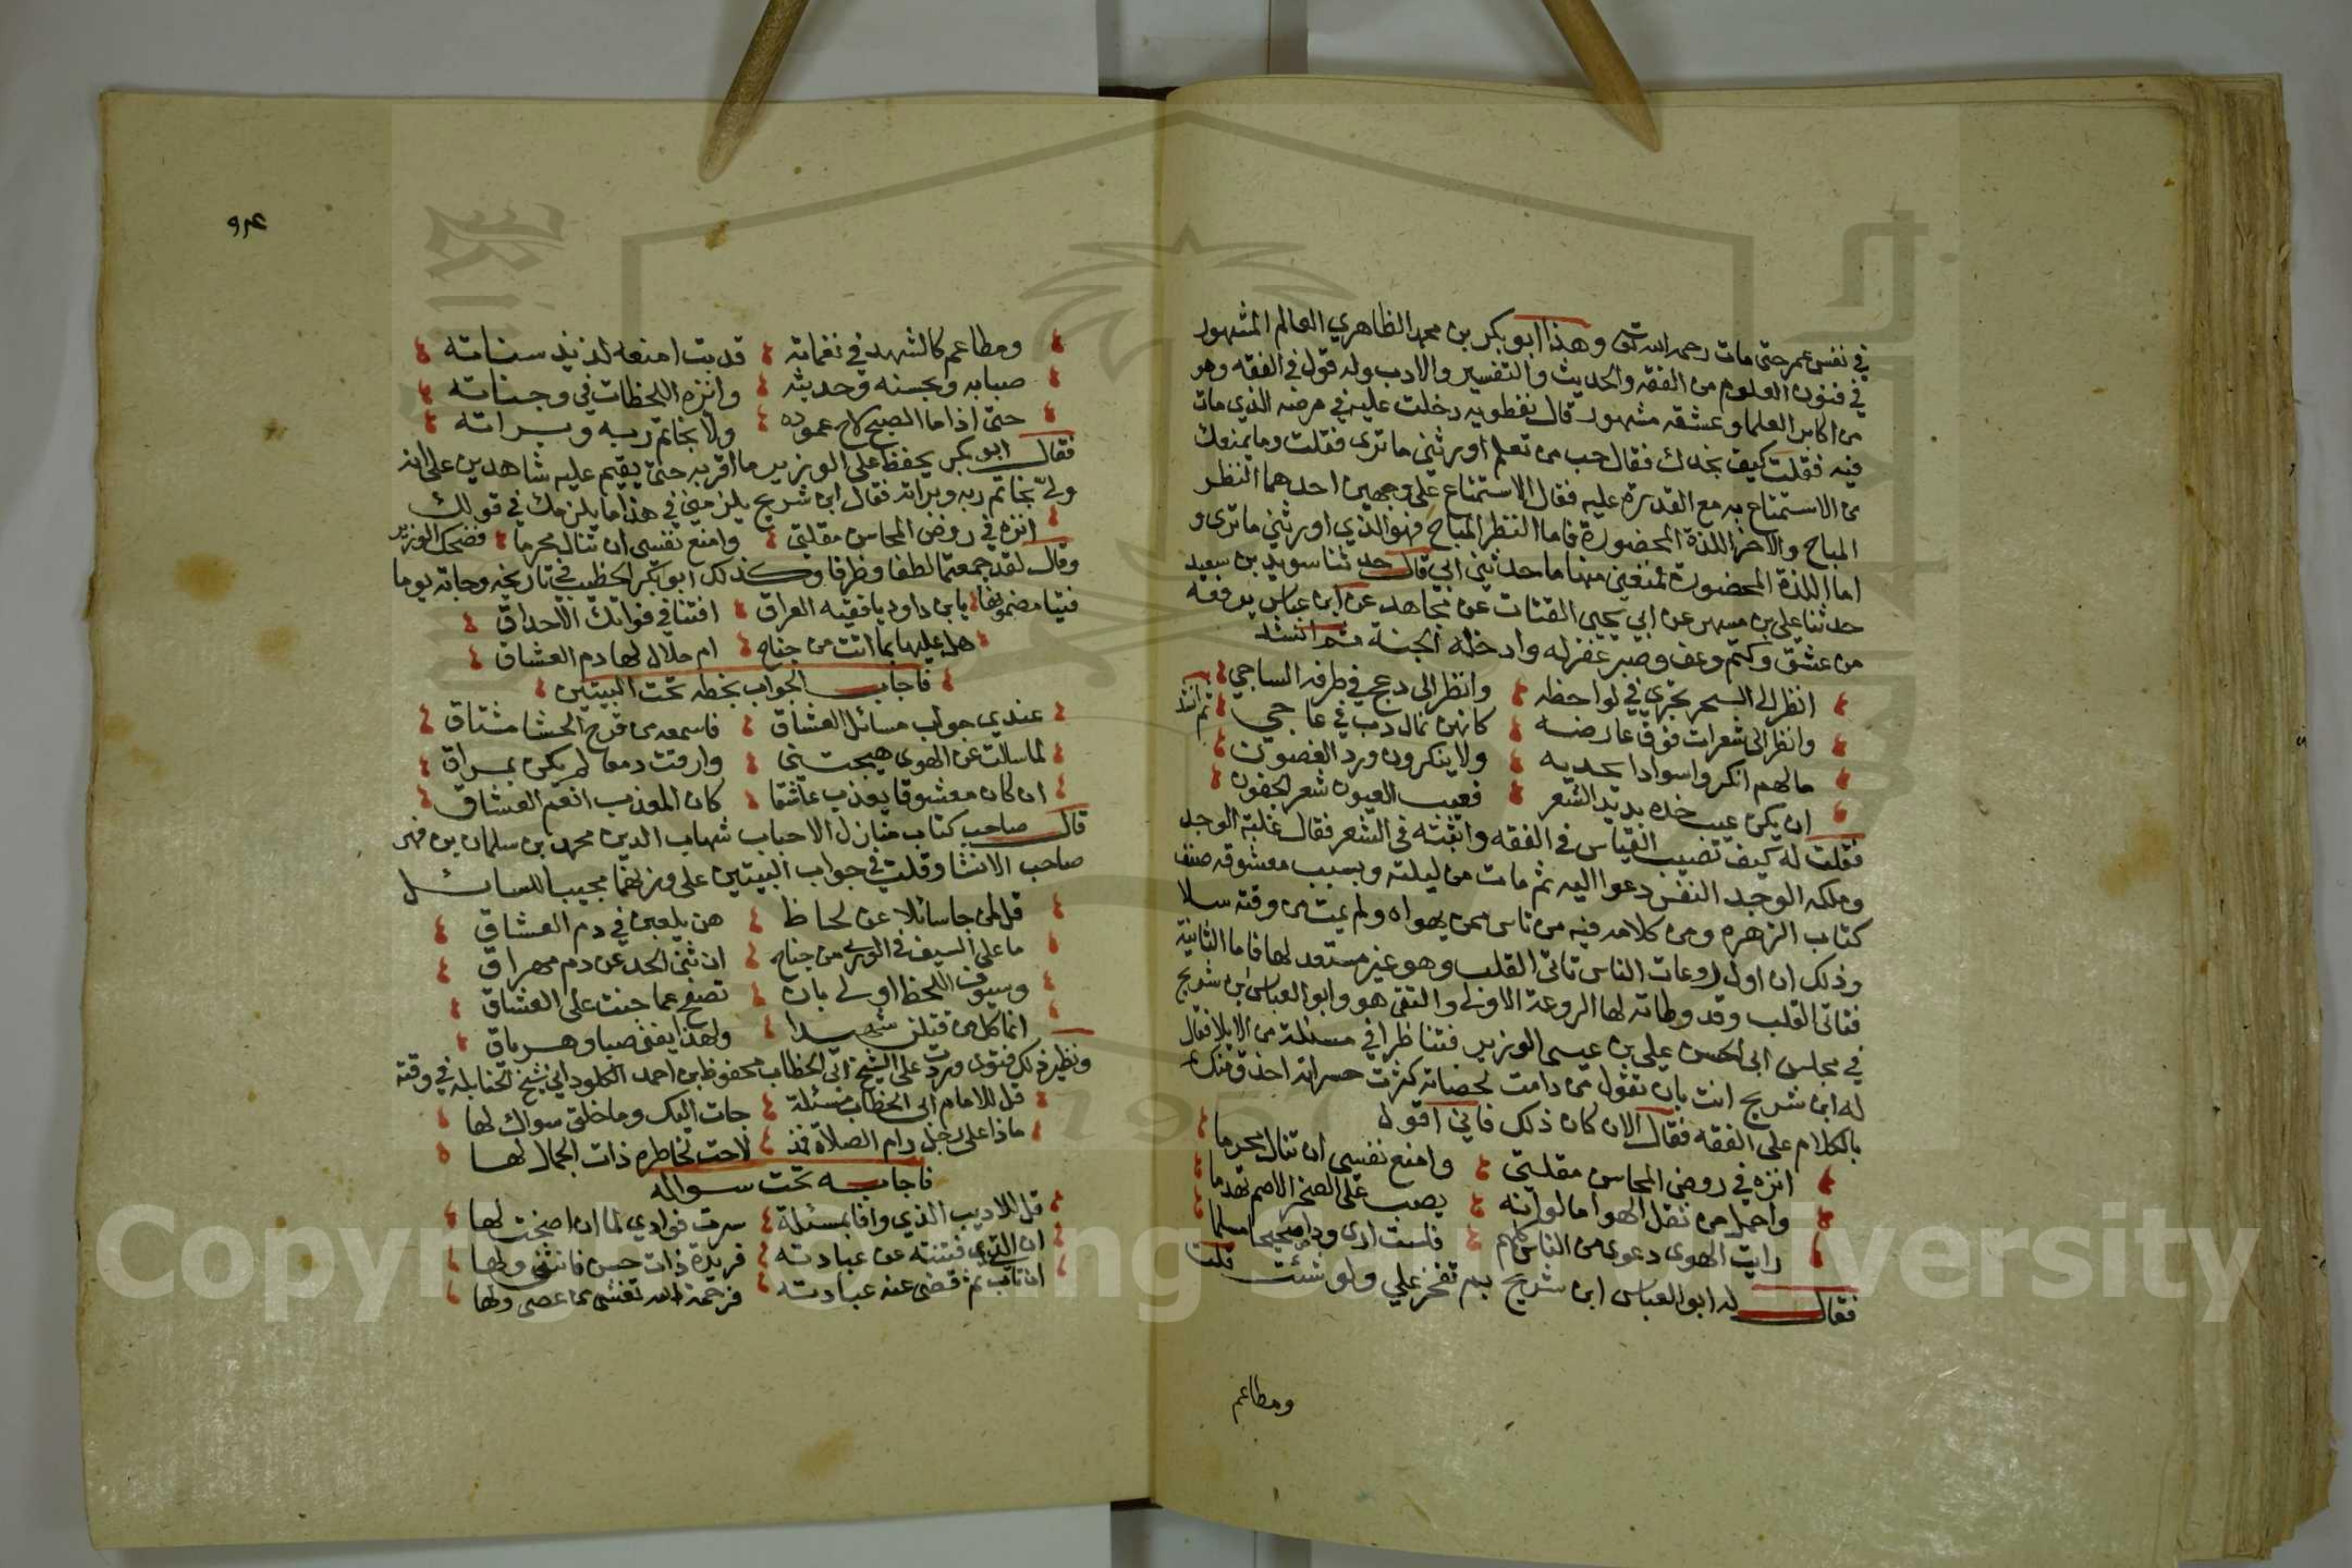 في نفس عمر حتى مات رحمه الله تعالى وهذا ابو بكر بن محمد الظاهري العالم المشهور
في فنون العلوم من الفقه والحديث والتفسير والادب وله قول في الفقه وهو
من اكابر العلما وعشقه مشهور قال نفطويه دخلت عليه في مرضه الذي مات
فيه فقلت كيف نجدك فقال حب من تعلم اورثني ما ترى فقلت وما يمنعك
من الاستمتاع به مع القدرة عليه فقال الاستمتاع على وجهين احدهما النظر
المباح والاخر اللذة المحضورة فاما النظر المباح فهو الذي اورثني ما ترى و
اما اللذة المحضورة فمنعني منها ما حدثني ابي قال حدثنا سويد بن سعيد
حدثنا علي بن مسهر عن ابي يحيى القتات عن مجاهد عن ابن عباس يرفعه
من عشق وكتم وعف وصبر غفر له وادخله الجنة ثم انشد
انظر الى السحر يجري في لواحظه وانظر الى دعج في طرفه الساجي
وانظر الى شعرات فوق عارضه كانهن نمال دب في عاجي ثم انشد
مالهم انكروا سوادا بخديه ولا ينكرون ورد الغصون
ان يكن عيب خده بديد الشعر فعيب العيون شعر الجفون
فقلت له كيف تضيب القياس في الفقه واثبته في الشعر فقال غلبة الوجد
وملكه الوجد النفس دعوا اليه ثم مات من ليلته وبسبب معشوقه صنف
كتاب الزهره ومن كلامه فيه من ياس ممن يهواه ولم يمت من وقته سلا
وذلك ان اول روعات الناس تاتى القلب وهو غير مستعد لها فاما الثانية
فتاتى القلب وقد وطاته لها الروعة الاولى والتقى هو وابو العباس بن شريح
في مجلس ابى الحسن علي بن عيسى الوزير فتناظرا في مسئلة من الايلا فقال
له ابن شريح انت بان تقول من دامت لحضاته كثرت حسراته احذق منك
بالكلام على الفقه فقال لان كان ذلك فاني اقول
انزه في روض المحاسن مقلتي وامنع نفسي ان تنال محرما
واحمل من ثقل الهوا ما لو انه يصب على الصخر الاصم تهدما
رايت الهوى دعوى من الناس كلهم فلست ارى ودا صحيحا مسلما
فقال له ابو العباس ابن شريح بم تفخر علي ولو شئت قلت
ومطاعم
ومطاعم كالشهد في نغماته قد بت امنعه لذيذ سناته
صبابه وبحسنه وحديثه وانزه اللحظات في وجناته
حتى اذا ما الصبح لاح عموده ولا بخاتم ربه وبراته
فقال ابو بكر يحفظ على الوزير ما اقر به حتى يقيم عليه شاهدين على انه
ولى بخاتم ربه وبراته فقال ابن شريح يلزمني في هذا ما يلزمك في قولك
انزه في روض المحاسن مقلتي وامنع نفسي ان تنال محرما فضحك الوزير
وقال لقد جمعتما لطفا وظرفا وكذلك ابو بكر الخطيب في تاريخه وجاته يوما
فتيا مضمونها يا بن داود يا فقيه العراق افتنا في فواتك الاحداق
هل عليها بما اتت من جناح ام حلال لها دم العشاق
فاجاب الجواب بخطه تحت البيتين
عندي جواب مسائل العشاق فاسمعه من قرح الحشا مشتاق
لما سالت عن الهوى هيجتني وارقت دمعا لم يكن بمراق
ان كان معشوقا يعذب عاشقا كان المعذب انعم العشاق
قال صاحب كتاب منازل الاحباب شهاب الدين محمد بن سلمان بن فهر
صاحب الانشا وقلت في جواب البيتين على وزنهما مجيبا للسائل
قل لمن جا سائلا عن لحاظ هن يلعبن في دم العشاق
ما على السيف في الورى من جناح ان ثنى الحد عن دم مهراق
وسيوف اللحظ اولى بان تصفح عما جنت على العشاق
انما كل من قتلن شهيدا ولهذا يفنى صبا وهو باق
ونظير ذلك فتوى وردت على الشيخ ابى الخطاب محفوظ بن احمد الكلوداني شيخ الحنابله في وقته
قل للامام ابى الخطاب مسئلة جات اليك وما خلق سواك لها
ماذا على رجل رام الصلاة فمذ لاحت لخاطره ذات الجمال لها
فاجابه تحت سواله
قل للاديب الذي وافا بمسئلة سرت فوادي لما ان اصخت لها
ان الذي فتنته عن عبادته فريدة ذات حسن فانثنى ولها
ان تاب ثم قضى عنه عبادته فرحمة الله تغشى من عصى ولها